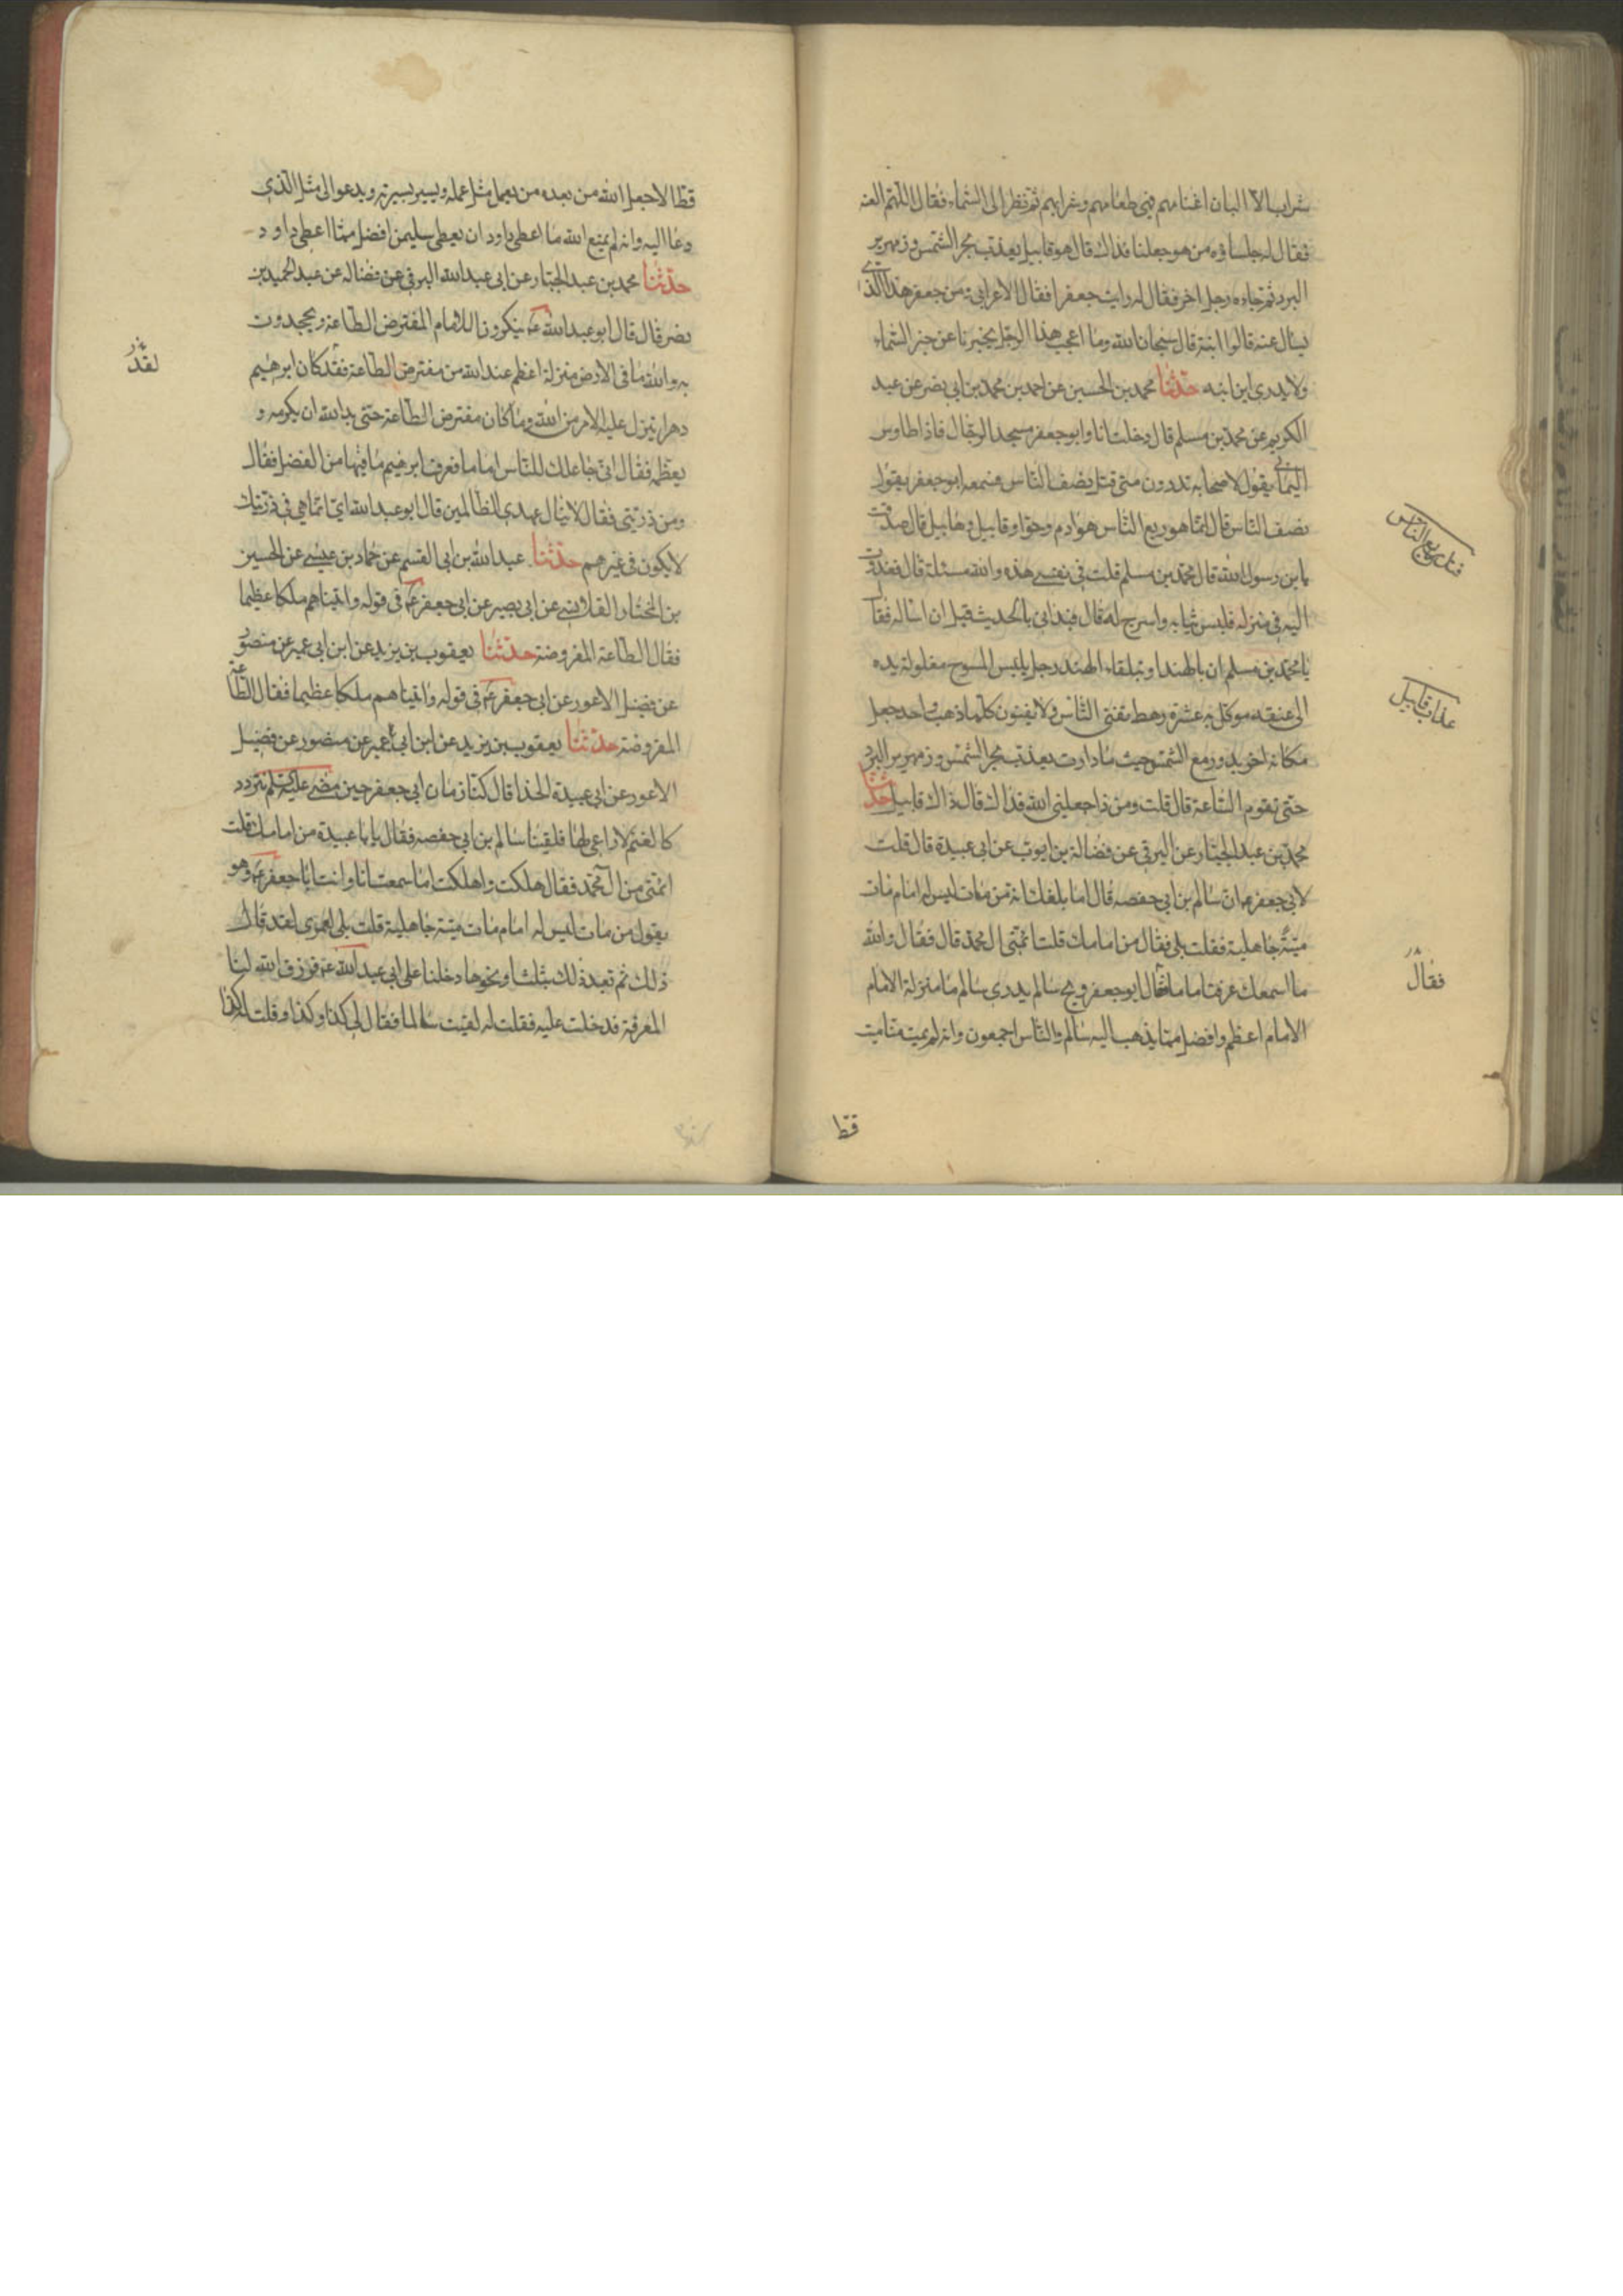 شراب الا البان اغنامهم فهی طعامهم وشرابهم ثم نظر الی السماء فقال اللهم العنه
فقال له جلساؤه من هو جعلنا فداك قال هو قابیل یعذب بحر الشمس وزمهریر
البرد ثم جاءه رجل اخر فقال له رایت جعفرا فقال الاعرابی من جعفر هذا الذی
یسال عنه قالوا ابنه قال سبحان الله وما اعجب هذا الرجل یخبرنا عن خبر السماء
ولا یدری این ابنه حدثنا محمد بن الحسین عن احمد بن محمد بن ابی نصر عن عبد
الکریم عن محمد بن مسلم قال دخلت انا وابو جعفر مسجد الرجال فاذا طاوس
الیمانی یقول لاصحابه تدرون متی قتل نصف الناس فسمعه ابو جعفر یقول
نصف الناس قال انما هو ربع الناس هو ادم وحوا وقابیل وهابیل قال صدقت
یابن رسول الله قال محمد بن مسلم قلت فی نفسی هذه والله مسئلة قال فغدوت
الیه فی منزله فلبس ثیابه واسرج له قال فبدانی بالحدیث قبل ان اساله فقال
یا محمد بن مسلم ان بالهند او بتلقاء الهند رجل یلبس المسوح مغلولة یده
الی عنقه موکل به عشرة رهط تفنی الناس ولا یفنون کلما ذهب واحد جعل
مکانه اخر یدور مع الشمس حیث ما دارت یعذب بحر الشمس وزمهریر البرد
حتی تقوم الساعة قال قلت ومن ذا جعلنی الله فداك قال ذاك قابیل حدثنا
محمد بن عبد الجبار عن البرقی عن فضالة بن ایوب عن ابی عبیدة قال قلت
لابی جعفر ع ان سالم بن ابی حفصه قال اما بلغك انه من مات لیس له امام مات
میتة جاهلیة فقلت بلی فقال من امامك قلت ائمتی ال محمد قال فقال والله
ما اسمعك عرفت اماما قال ابو جعفر ویح سالم یدری سالم ما منزلة الامام
الامام اعظم وافضل مما یذهب الیه سالم والناس اجمعون وانه لم یمت منا میت
قتل ربع الناس
عذاب قابیل
فقال
قط
قط الا جعل الله من بعده من یعمل مثل عمله ویسیر بسیرته ویدعو الی مثل الذی
دعا الیه وانه لم یمنع الله ما اعطی داود ان یعطی سلیمن افضل مما اعطی داود
حدثنا محمد بن عبد الجبار عن ابی عبد الله البرقی عن فضاله عن عبد الحمید بن
نصر قال قال ابو عبد الله ع ینکرون الامام المفترض الطاعة ویجحدون
به والله ما فی الارض منزلة اعظم عند الله من مفترض الطاعة فقد کان ابرهیم
دهرا ینزل علیه الامر من الله وما کان مفترض الطاعة حتی بدا لله ان یکرمه و
یعظمه فقال انی جاعلك للناس اماما فعرف ابرهیم ما فیها من الفضل فقال
ومن ذریتی فقال لا ینال عهدی الظالمین قال ابو عبد الله ای انما هی فی ذریتك
لا یکون فی غیرهم حدثنا عبد الله بن ابی القسم عن حماد بن عیسی عن الحسین
بن المختار القلانسی عن ابی بصیر عن ابی جعفر ع فی قوله واتیناهم ملکا عظیما
فقال الطاعة المفروضة حدثنا یعقوب بن یزید عن ابن ابی عمیر عن منصور
عن فضیل الاعور عن ابی جعفر ع فی قوله واتیناهم ملکا عظیما فقال الطاعة
المفروضة حدثنا یعقوب بن یزید عن ابن ابی عمیر عن منصور عن فضیل
الاعور عن ابی عبیدة الحذا قال کنا زمان ابی جعفر حین مضی علیه السلم نتردد
کالغنم لا راعی لها فلقینا سالم بن ابی حفصه فقال یا با عبیدة من امامك قلت
ائمتی من ال محمد فقال هلکت واهلکت اما سمعت انا وانت ابا جعفر ع وهو
یقول من مات لیس له امام مات میتة جاهلیة قلت بلی لعمری لقد قال
ذلك ثم بعد ذلك بثلث او نحوها دخلنا علی ابی عبد الله ع فرزق الله لنا
المعرفة فدخلت علیه فقلت له لقیت سالما فقال لی کذا وکذا وقلت له کذا
لقد